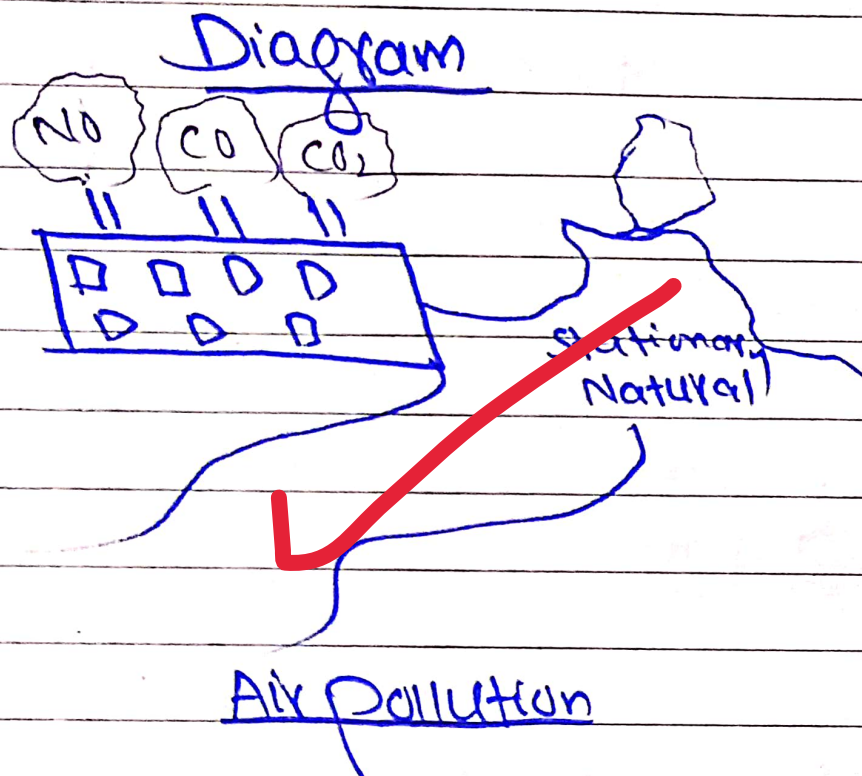 Diagram
NO CO CO₂
Stationary
Natural
Air Pollution